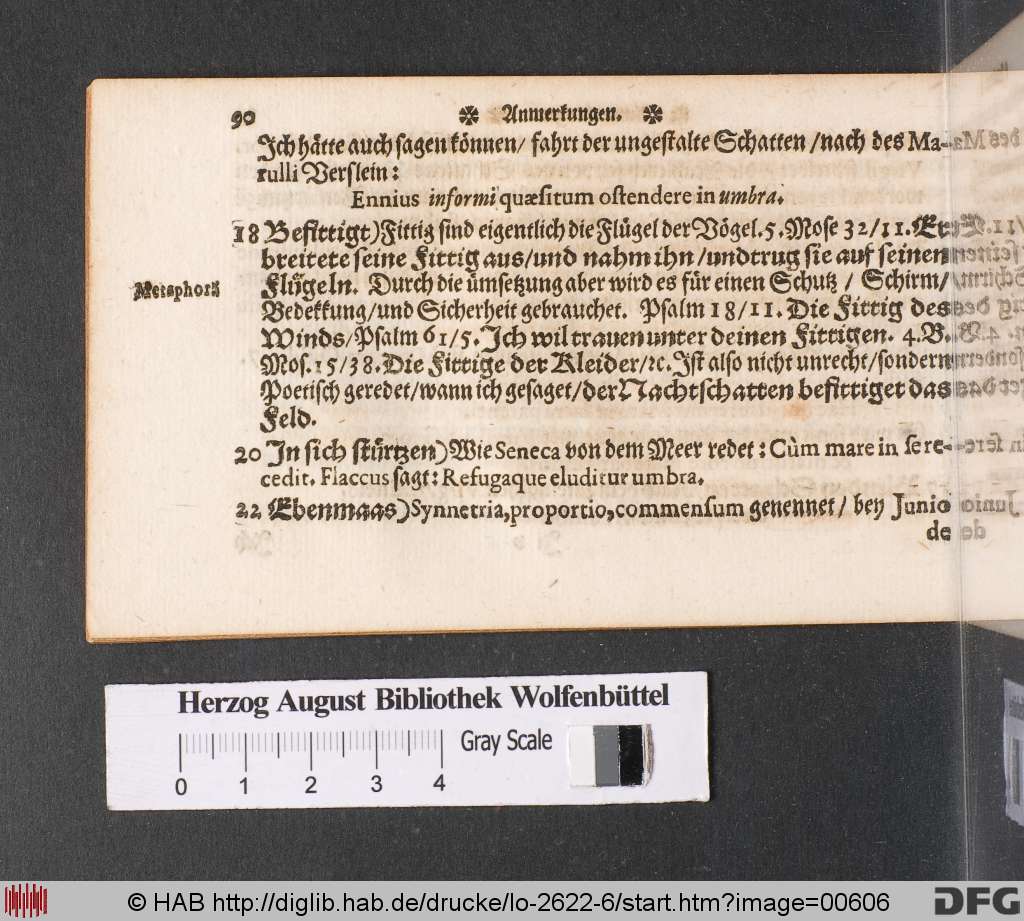 90 ❋ Anmerkungen. ❋
Ich hätte auch sagen können/ fahrt der ungestalte Schatten /nach des Ma-
rulli Verslein:
Ennius informi quæsitum ostendere in umbra.
18 Befittigt) Fittig sind eigentlich die Flügel der Vögel. 5. Mose 32/11. Er
breitete seine Fittig aus/und nahm ihn /undtrug sie auf seinen
Metaphora
Flügeln. Durch die ümsetzung aber wird es für einen Schutz / Schirm/
Bedekkung/und Sicherheit gebrauchet. Psalm 18/11. Die Fittig des
Winds/Psalm 61/5. Ich wil trauen unter deinen Fittigen. 4. B.
Mos. 15/38. Die Fittige der Kleider/ꝛc. Ist also nicht unrecht/sondern
Poetisch geredet/wann ich gesaget/der Nachtschatten befittiget das
Feld.
20 In sich stürtzen) Wie Seneca von dem Meer redet: Cùm mare in se re-
cedit. Flaccus sagt: Refugaque eluditur umbra.
22 Ebenmaas) Synnetria, proportio, commensum genennet/ bey Junio
de
Herzog August Bibliothek Wolfenbüttel
Gray Scale
0 1 2 3 4
© HAB http://diglib.hab.de/drucke/lo-2622-6/start.htm?image=00606
DFG